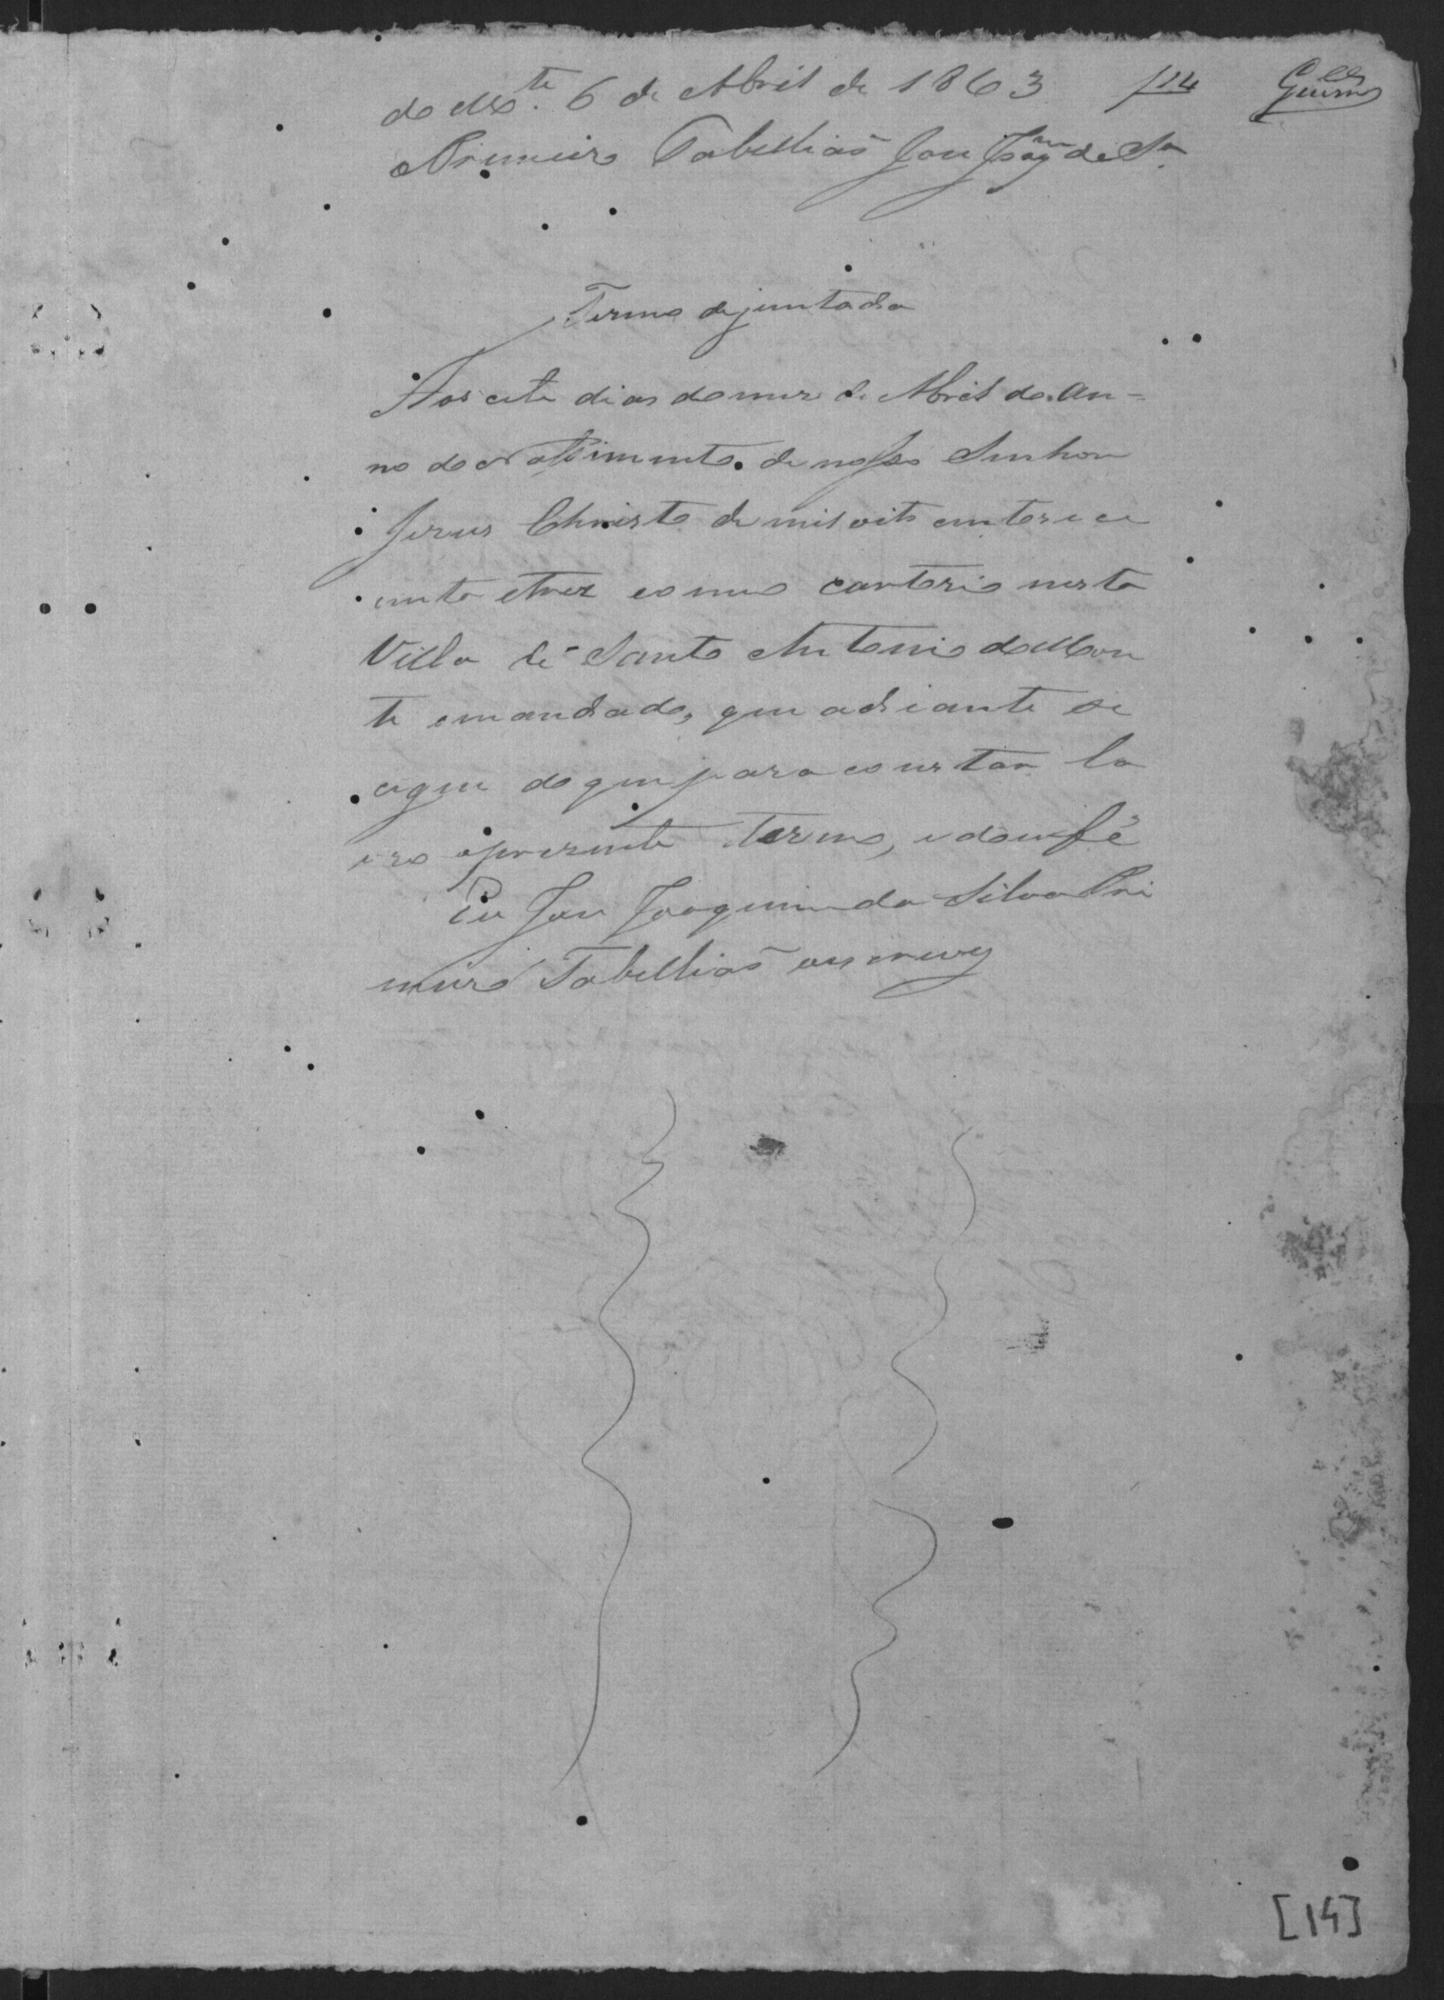 do Me.te 6 de Abril de 1863 f14
O Primeiro Tabelliaõ Jose Joaqm da Sa
Termo dejuntada
Aos cete dias do mez de Abril do an=
no do Nassimento de nosso Senhor
Jezus Christo de mil oito centos e ce
centa e trez em meo cartorio nesta
Villa de Santo Antonio do Mon
te emandado, que adiante se
cegue do que para constar la
vro o prezente termo, e dou fé
Eu Jose Joaquim da Silva Pri
meiro Tabelliaõ o escrevy
[14]